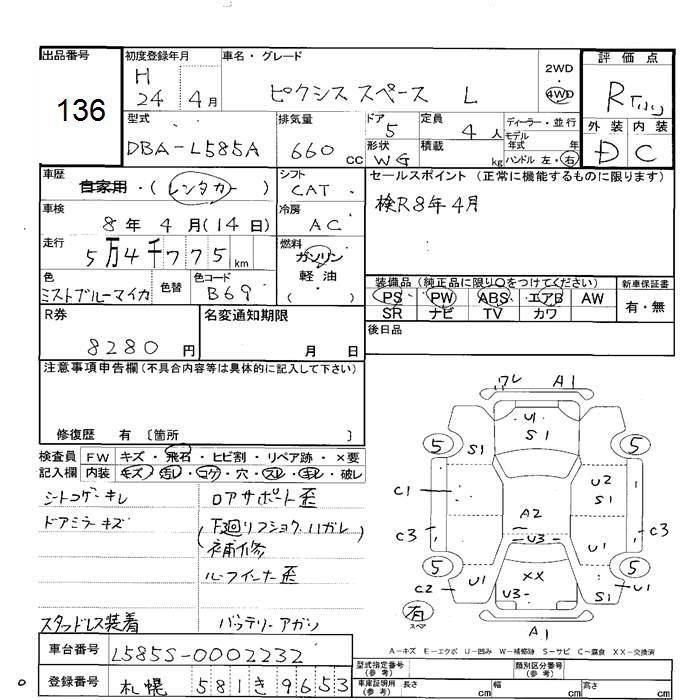 出品番号
136
初度登録年月
H
24 4月
車名・グレード
ピクシス スペース L
2WD
・
4WD
評価点
R
外装 内装
D C
型式
DBA-L585A
排気量
660 cc
ドア
5
定員
4 人
ディーラー・並行
モデル
年式 年
形状
WG
積載
kg
ハンドル 左・右
車歴
自家用・(レンタカー)
シフト
CAT
セールスポイント(正常に機能するものに限ります)
検R8年4月
車検
8年 4月(14日)
冷房
AC
走行
5万4千775 km
燃料
ガソリン
軽油
( )
色
ミストブルーマイカ
色替
色コード
B69
装備品(純正品に限り○をつけてください)
新車保証書
PS PW ABS エアB AW
SR ナビ TV カワ
有・無
R券
8280 円
名変通知期限
月 日
後日品
注意事項申告欄(不具合内容等は具体的に記入して下さい)
修復歴 有 〔箇所 〕
検査員 FW キズ・飛石・ヒビ割・リペア跡・×要
記入欄 内装 キズ・汚レ・コゲ・穴・スレ・キレ・破レ
シートコゲ・キレ
ドアミラーキズ
スタッドレス装着
ロアサポート歪
(下廻リフショク、ハガレ
補修)
ルーフインナー歪
バッテリーアガリ
ワレ A1
U1
S1
5 S1 5
U2
S1
C1
A2
C3 C3
U3
U1
5 5
XX
C2 U1 U3 S1 U1
有
スペア
A1
A-キズ E-エクボ U-凹み W-補修跡 S-サビ C-腐食 XX-交換済
車台番号
L585S-0002232
登録番号
札幌 581き9653
型式指定番号
(参考)
類別区分番号
(参考)
車庫証明用
(参考)
長さ cm
幅 cm
高さ cm